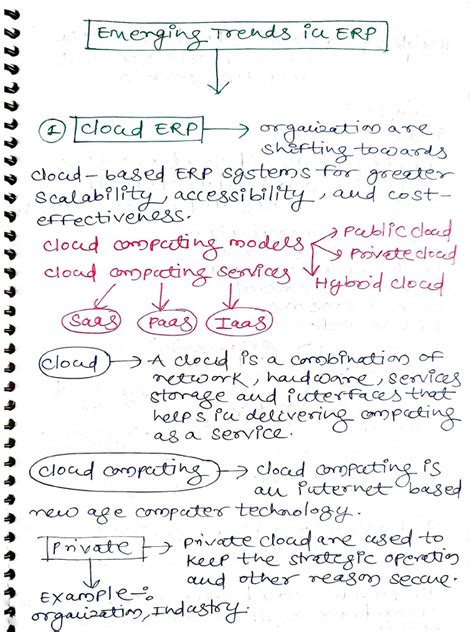 Emerging Trends in ERP
① Cloud ERP → organization are
shifting towards
cloud-based ERP systems for greater
scalability, accessibility, and cost-
effectiveness.
cloud computing models → Public cloud
→ Private cloud
cloud computing services Hybrid cloud
SaaS PaaS IaaS
cloud → A cloud is a combination of
network, hardware, services
storage and interfaces that
helps in delivering computing
as a service.
cloud computing → cloud computing is
an internet based
new age computer technology.
Private → private cloud are used to
keep the strategic operation
and other reason secure.
Example-:
organization, Industry.